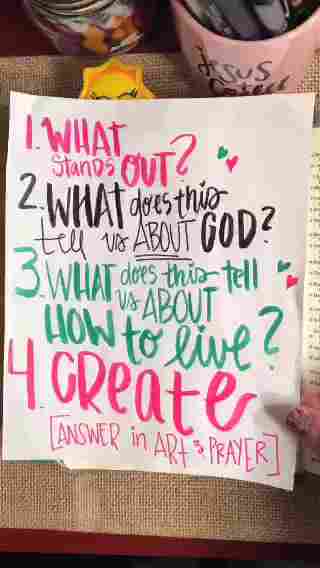 JESUS
1. WHAT
StanDS OUT?
2. WHAT does this
tell us ABOUT GOD?
3. WHAT does this tell
us ABOUT
HOW to live?
4. CReate
[ANSWER in ART & PRAYER]